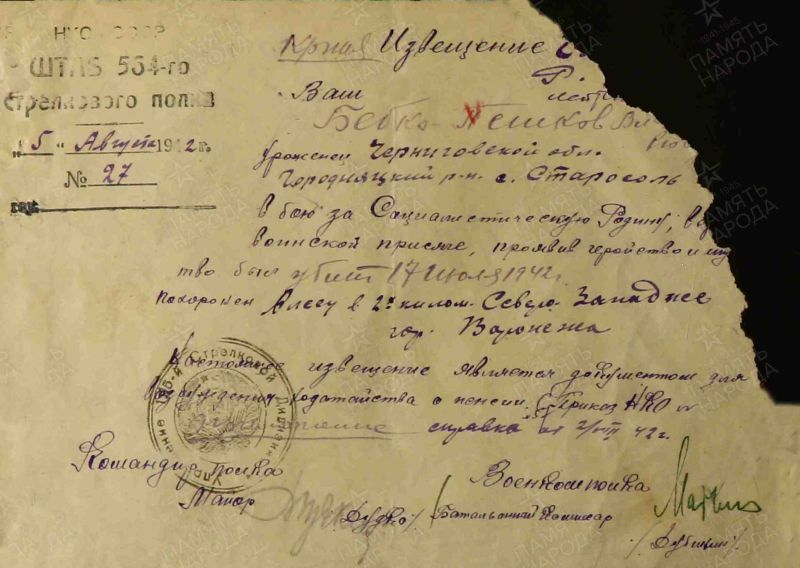 НКО СССР
ШТАБ 564-го
Стрелкового полка
"5" Августа 1942г.
№ 27
Копия Извещение
Ваш
Бебко-Пешков Вл
уроженец Черниговской обл.
Городняцкий р-н с. Старосель
в бою за Социалистическую Родину, в
воинской присяге, проявив геройство и му
тво был убит 17 Июля 1942г.
похоронен Лесу в 2х килом. Северо-Западнее
гор. Воронежа
Настоящее извещение является документом для
возбуждения ходатайства о пенсии (Приказ НКО №
справка от 2/VIII 42г.
Управление 195-й Стрелковой Дивизии
Командир полка
Майор
/Дудко/
Военком полка
Батальонный Комиссар
ПАМЯТЬ
НАРОДА
1941-1945